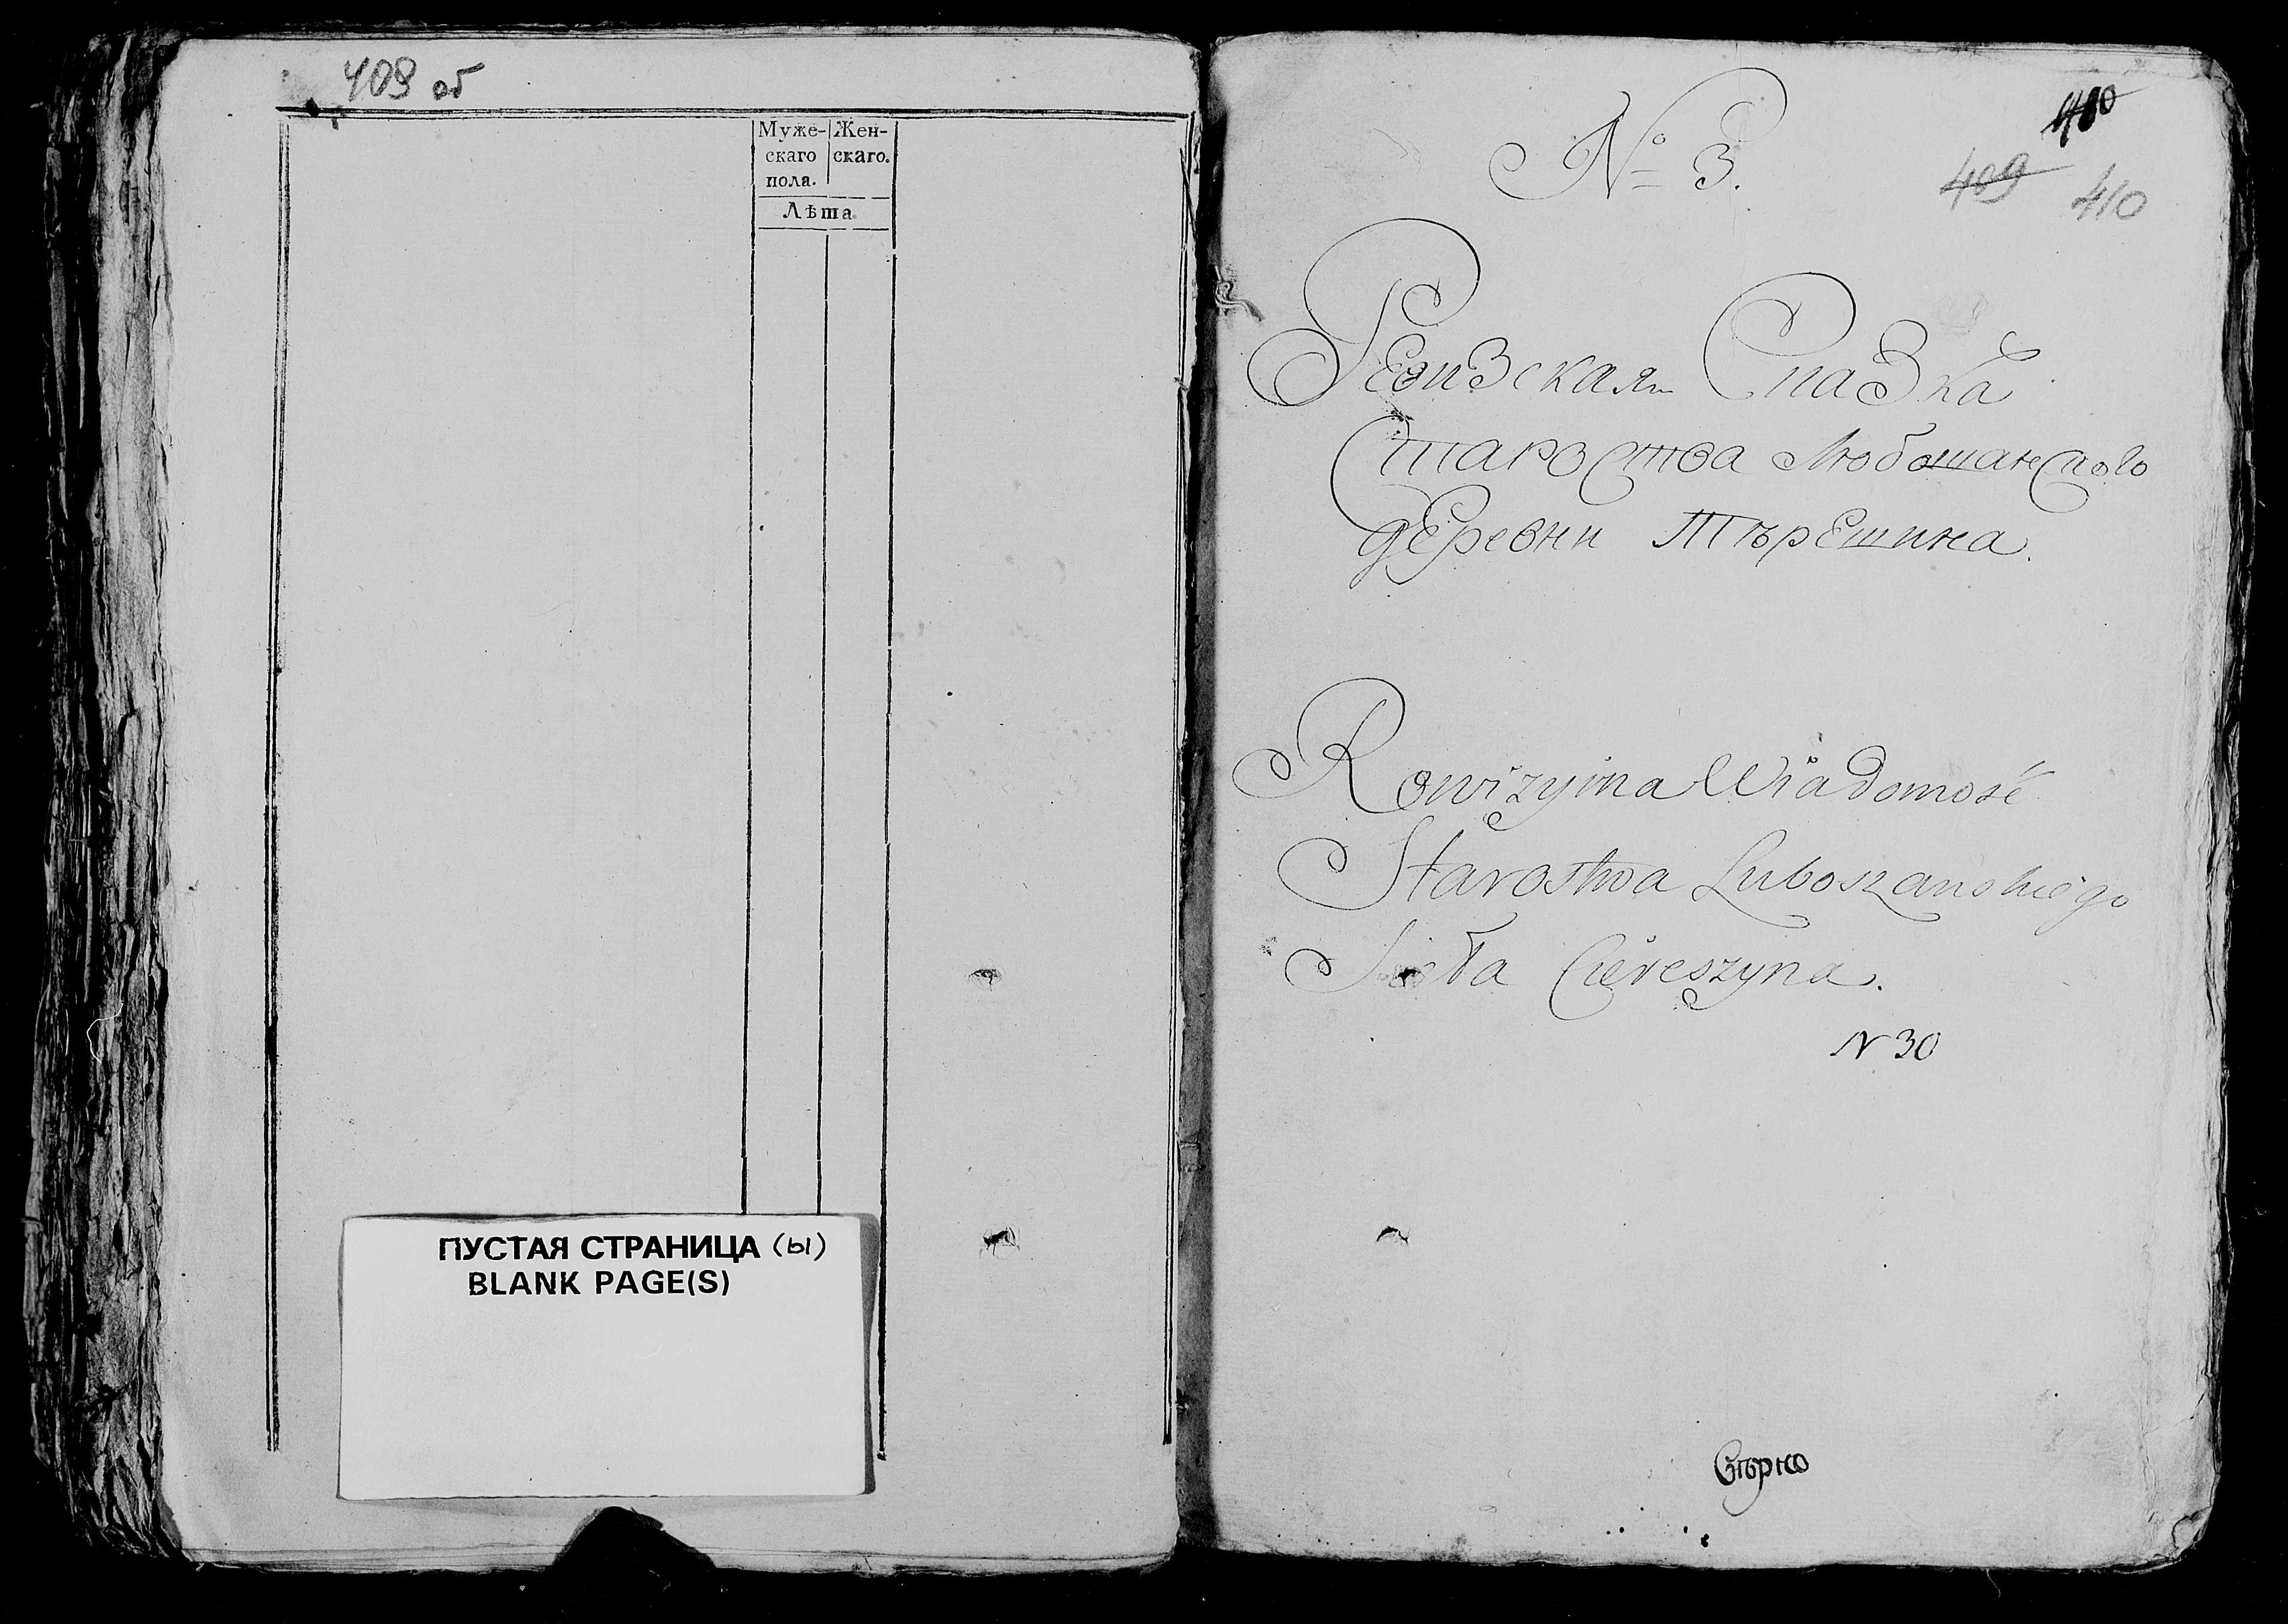 409 об
Муже- Жен-
скаго скаго.
пола.
Лѣта.
ПУСТАЯ СТРАНИЦА (ы)
BLANK PAGE(S)
№ 3.
410
409 410
Ревизская Сказка
Староства Любошанского
деревни Тѣрешина.
Rewizyina Wiadomość
Starostwa Luboszanskiego
Sioła Ciereszyna.
N 30